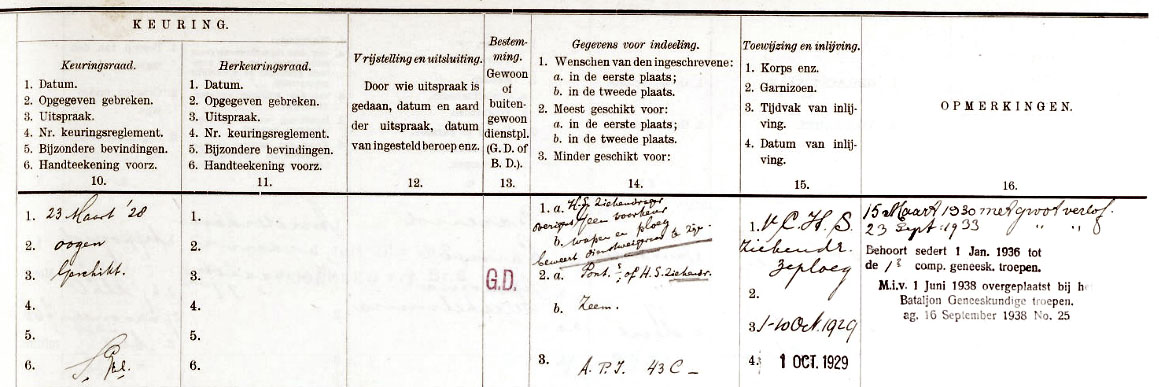 KEURING.
Keuringsraad.
1. Datum.
2. Opgegeven gebreken.
3. Uitspraak.
4. Nr. keuringsreglement.
5. Bijzondere bevindingen.
6. Handteekening voorz.
10.
Herkeuringsraad.
1. Datum.
2. Opgegeven gebreken.
3. Uitspraak.
4. Nr. keuringsreglement.
5. Bijzondere bevindingen.
6. Handteekening voorz.
11.
Vrijstelling en uitsluiting.
Door wie uitspraak is
gedaan, datum en aard
der uitspraak, datum
van ingesteld beroep enz.
12.
Bestem-
ming.
Gewoon
of
buiten-
gewoon
dienstpl.
(G. D. of
B. D.).
13.
Gegevens voor indeeling.
1. Wenschen van den ingeschrevene:
a. in de eerste plaats;
b. in de tweede plaats.
2. Meest geschikt voor:
a. in de eerste plaats;
b. in de tweede plaats.
3. Minder geschikt voor:
14.
Toewijzing en inlijving.
1. Korps enz.
2. Garnizoen.
3. Tijdvak van inlij-
ving.
4. Datum van inlij-
ving.
15.
OPMERKINGEN.
16.
1. 23 Maart '28
2. oogen
3. Geschikt.
4.
5.
6.
1.
2.
3.
4.
5.
6.
G.D.
1. a. H.S. Ziekendrager
overigens geen voorkeur
b. wapen en ploeg
beweert dienstweigeraar te zijn.
2. a. Pont. of H.S. Ziekendr.
b. Zeem.
3. A.P.I. 43 C –
1. C. H. S.
Ziekendr.
Zeploeg
2.
3. 1-10 Oct. 1929
4. 1 OCT. 1929
15 Maart 1930 met groot verlof.
23 Sept. 1933 " " "
Behoort sedert 1 Jan. 1936 tot
de 1e comp. geneesk. troepen.
M.i.v. 1 Juni 1938 overgeplaatst bij he
Bataljon Geneeskundige troepen.
ag. 16 September 1938 No. 25